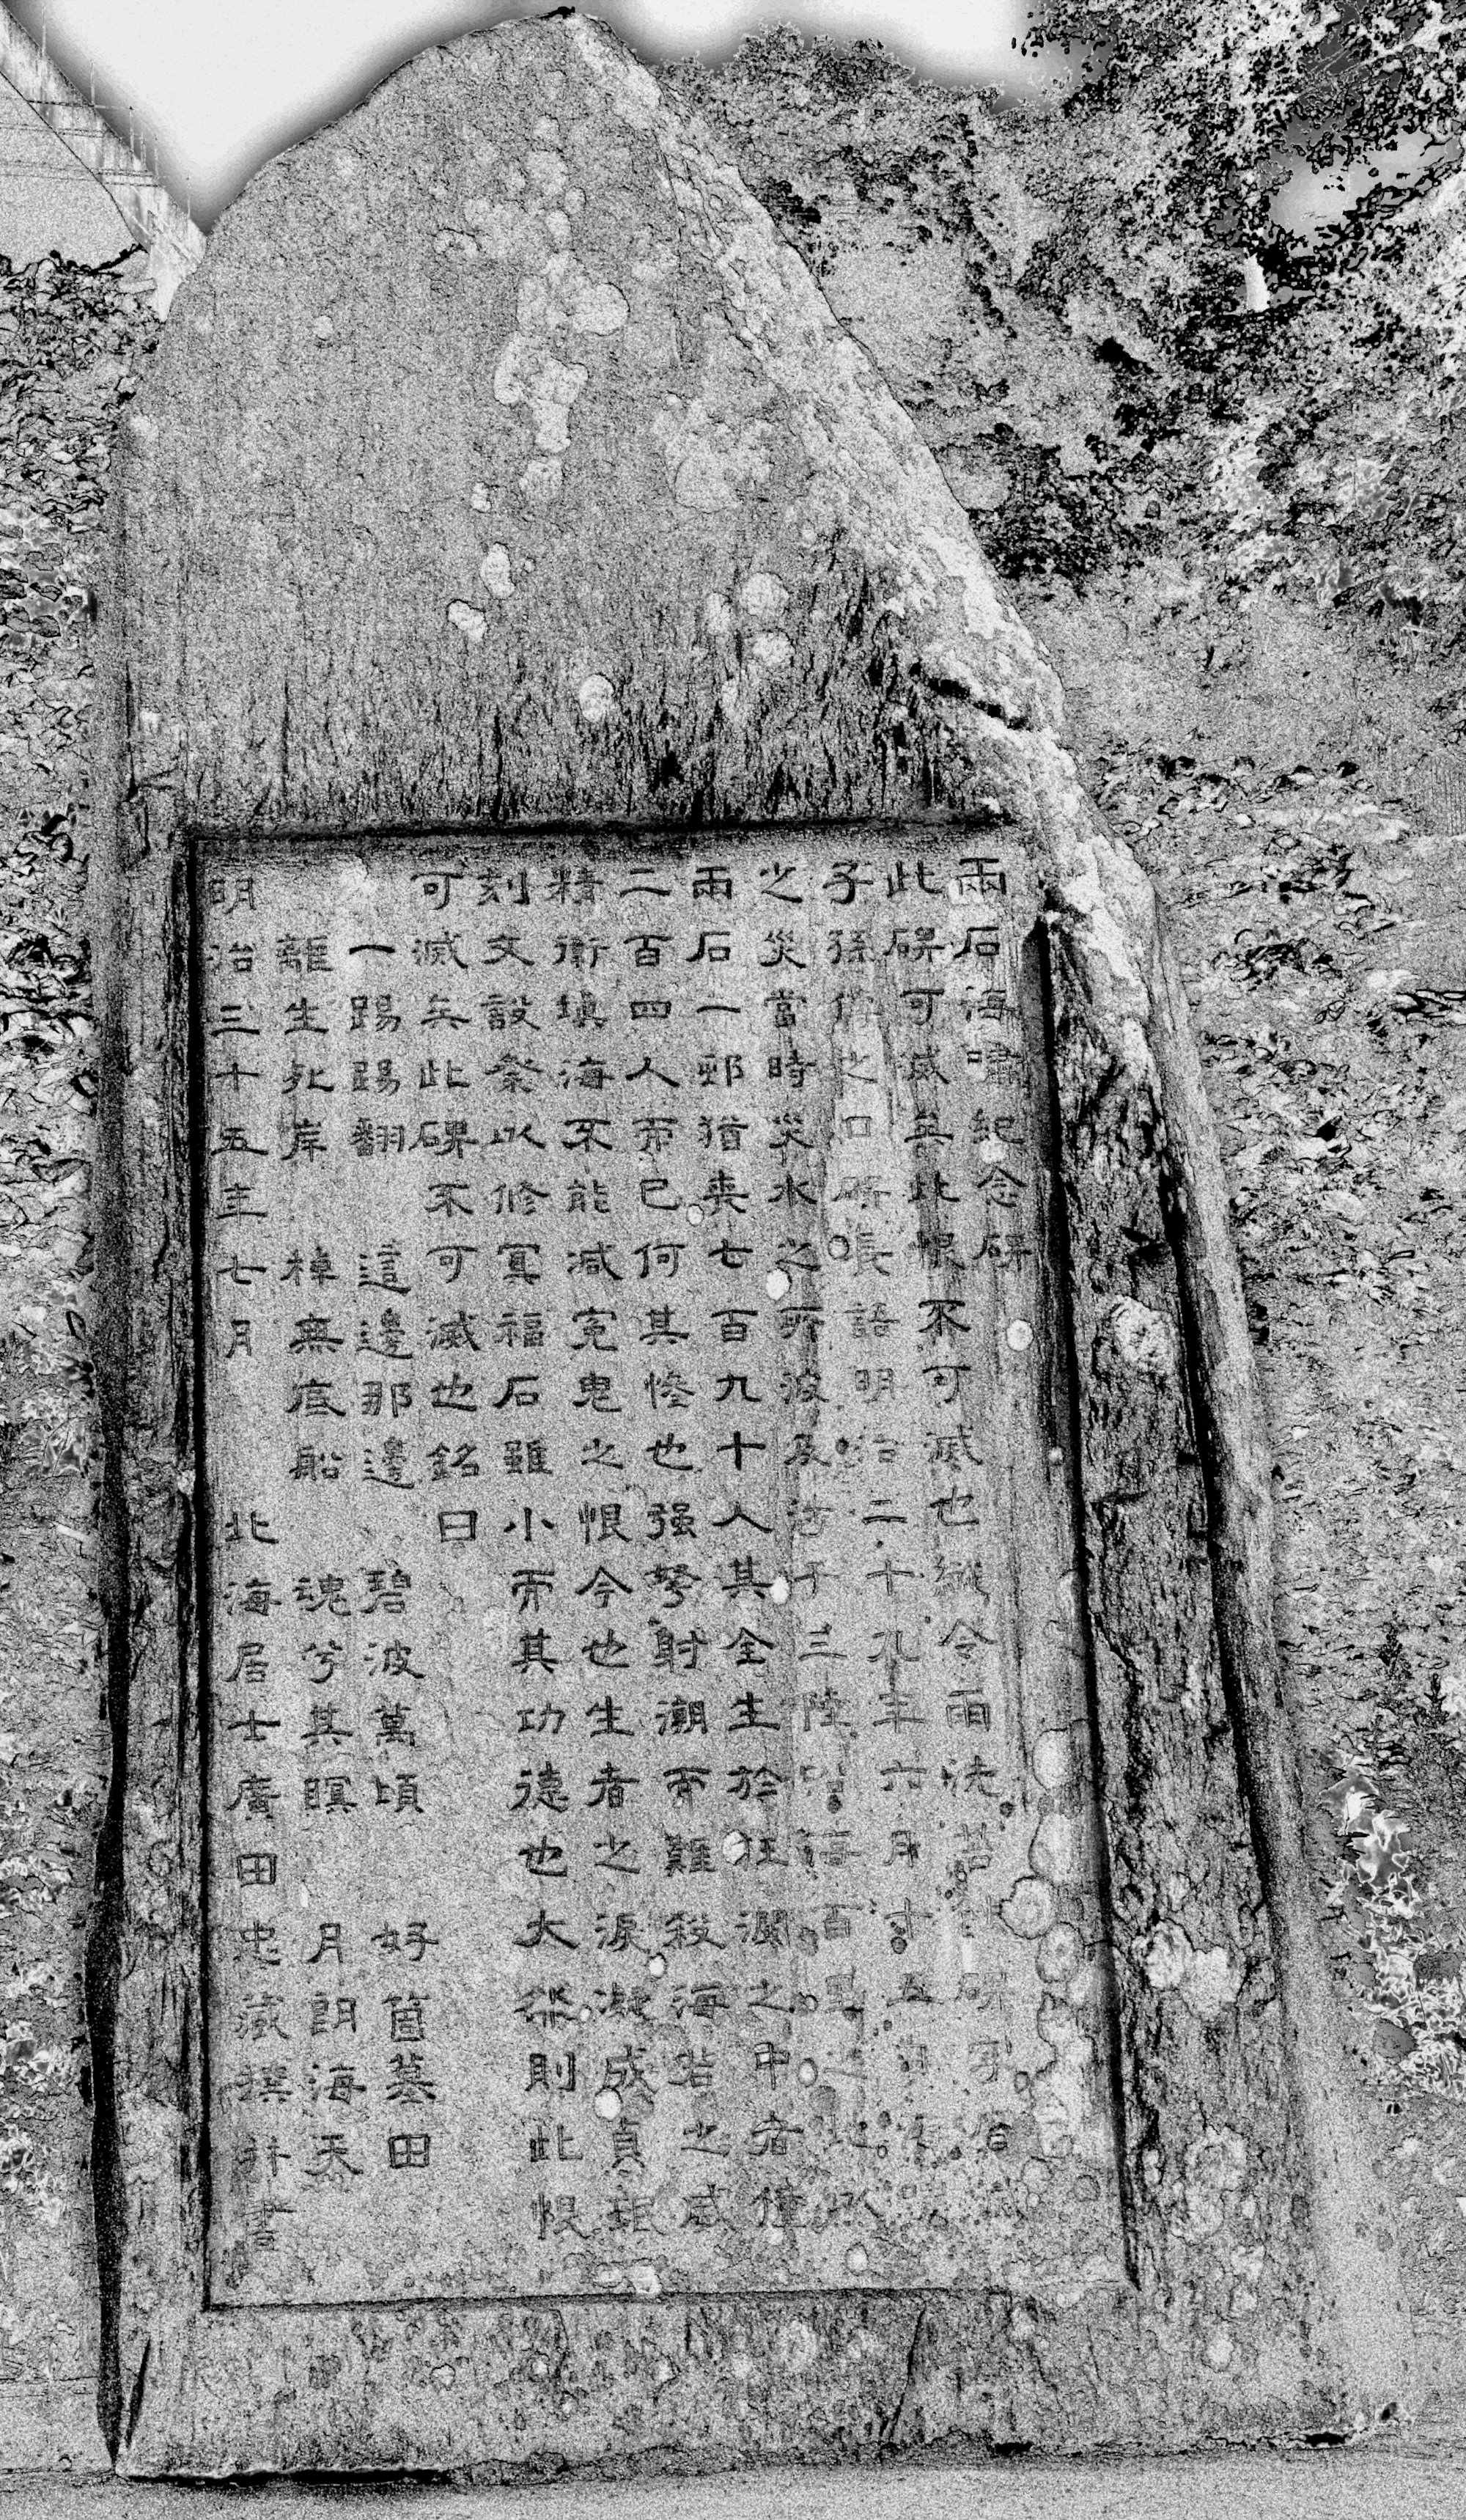 兩石海嘯紀念碑
此碑可滅矣此恨不可滅也縱令雨洗苔蝕碑字皆滅
子孫傳之口碑長語明治二十九年六月十五日
之災當時災水之所波及三陸百里之地
兩石一邨猶喪七百九十人其全生於狂瀾之中者僅
二百四人而已何其慘也强弩射潮而難殺海若之威
精衛塡海不能减冤鬼之恨今也生者之淚凝成貞珉
刻文設祭以修冥福石雖小而其功德也大然則此恨
可滅矣此碑不可滅也銘曰
一踢踢翻 這邊那邊 碧波萬頃 好箇墓田
離生死岸 棹無底船 魂兮其瞑 月朗海天
明治三十五年七月 北海居士廣田忠藏撰并書